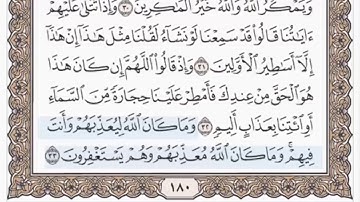 وَيَمْكُرُ ٱللَّهُ وَٱللَّهُ خَيْرُ ٱلْمَـٰكِرِينَ ٣٠ وَإِذَا تُتْلَىٰ عَلَيْهِمْ
ءَايَـٰتُنَا قَالُوا۟ قَدْ سَمِعْنَا لَوْ نَشَآءُ لَقُلْنَا مِثْلَ هَـٰذَآ إِنْ هَـٰذَآ
إِلَّآ أَسَـٰطِيرُ ٱلْأَوَّلِينَ ٣١ وَإِذْ قَالُوا۟ ٱللَّهُمَّ إِن كَانَ هَـٰذَا
هُوَ ٱلْحَقَّ مِنْ عِندِكَ فَأَمْطِرْ عَلَيْنَا حِجَارَةً مِّنَ ٱلسَّمَآءِ
أَوِ ٱئْتِنَا بِعَذَابٍ أَلِيمٍ ٣٢ وَمَا كَانَ ٱللَّهُ لِيُعَذِّبَهُمْ وَأَنتَ
فِيهِمْ ۚ وَمَا كَانَ ٱللَّهُ مُعَذِّبَهُمْ وَهُمْ يَسْتَغْفِرُونَ ٣٣
١٨٠